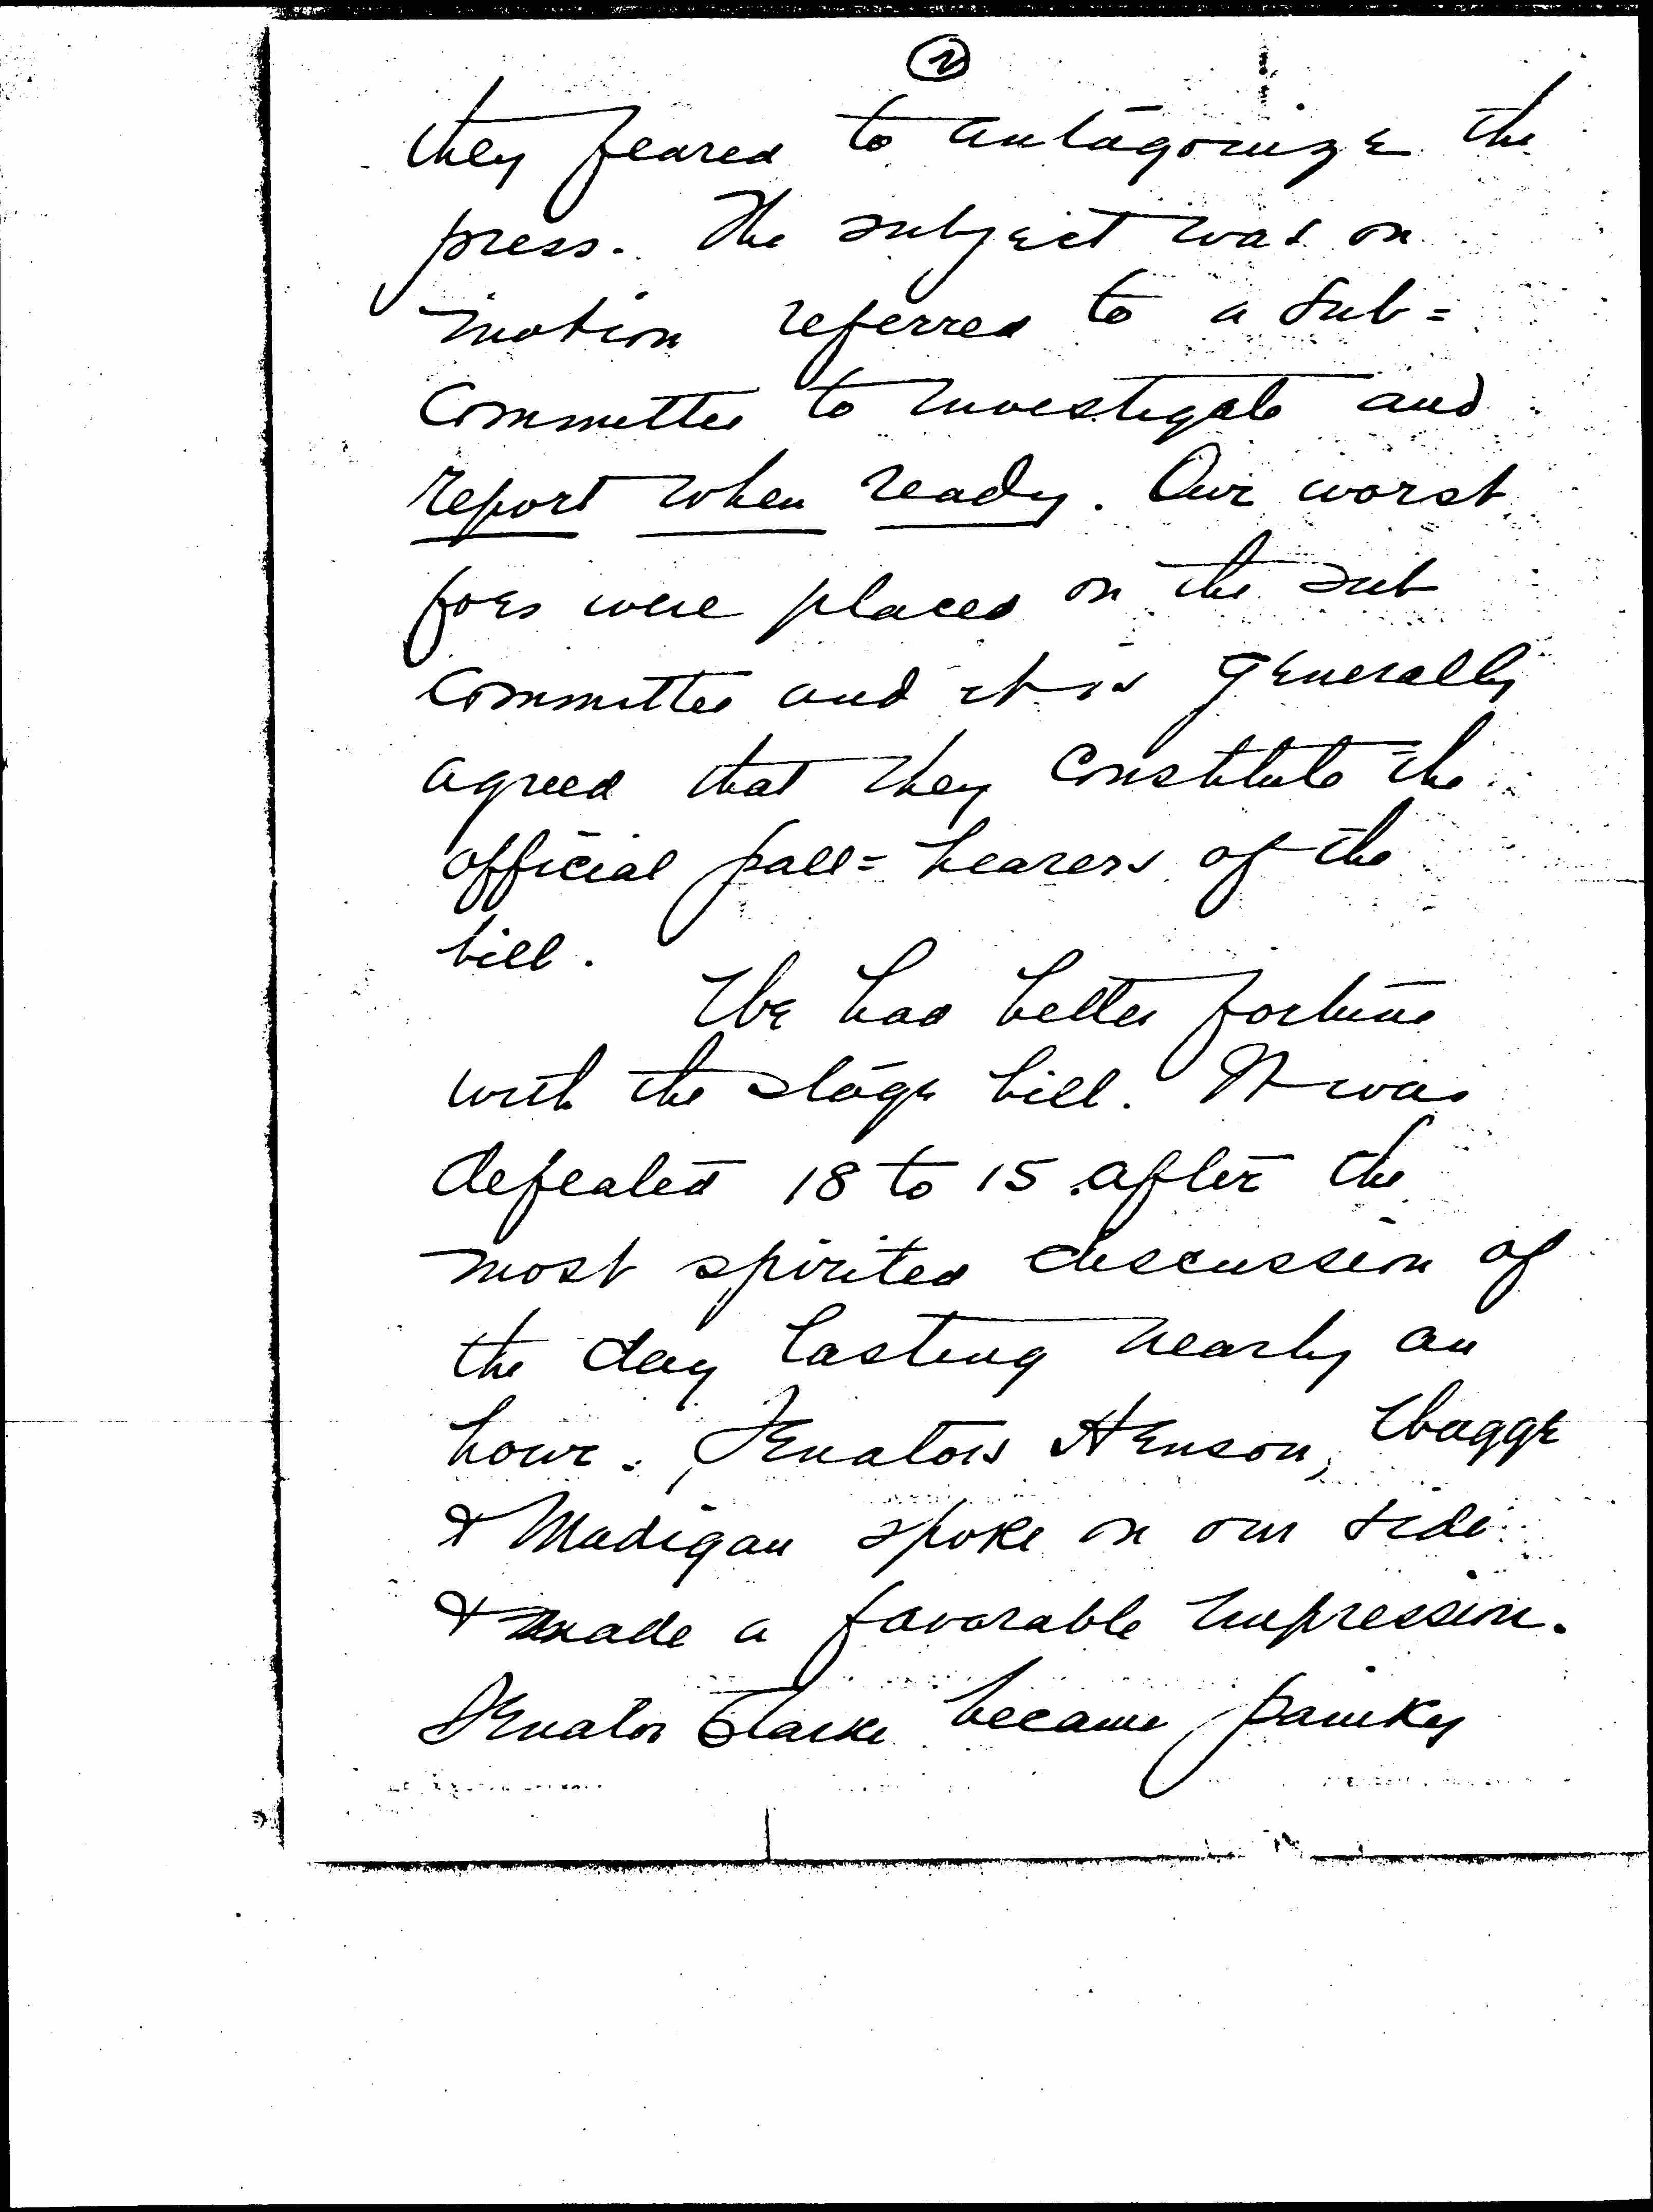 2
they feared to antagonize the
press. The subject was on
motion referred to a Sub=
Committee to investigate and
report when ready. Our worst
foes were placed on the sub
Committee and it is generally
agreed that they constitute the
official pall=bearers of the
bill.
We had better fortune
with the stage bill. It was
defeated 18 to 15 after the
most spirited discussion of
the day lasting nearly an
hour. Senators Henson, Wagge
& Madigan spoke on our side
& made a favorable impression.
Senator Clarke became panicky